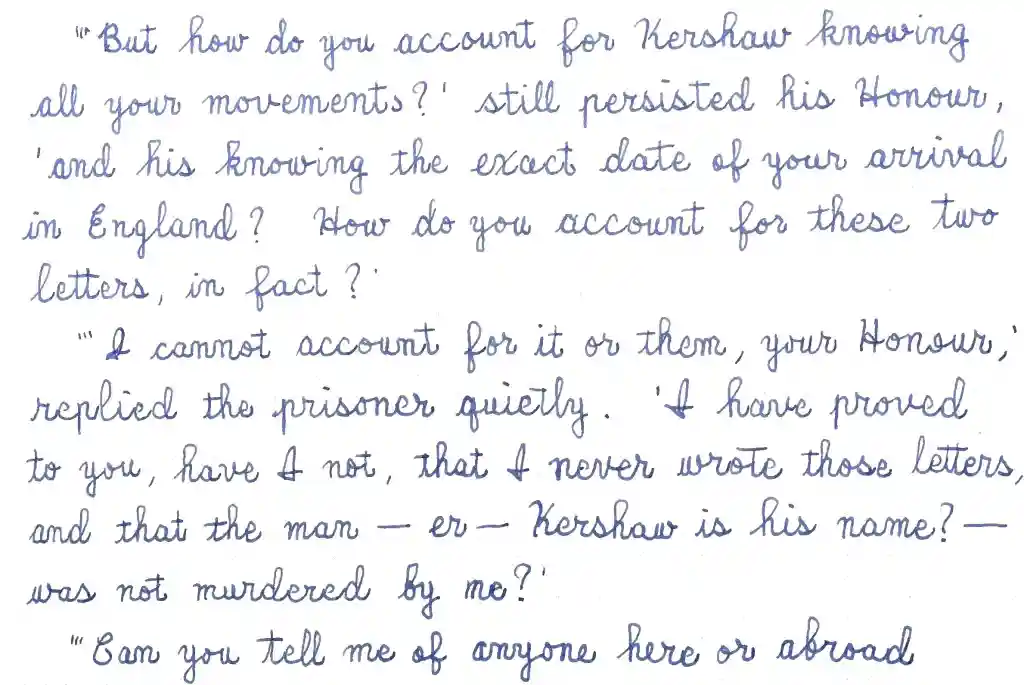 "'But how do you account for Kershaw knowing
all your movements?' still persisted his Honour,
'and his knowing the exact date of your arrival
in England? How do you account for these two
letters, in fact?'
"'I cannot account for it or them, your Honour,'
replied the prisoner quietly. 'I have proved
to you, have I not, that I never wrote those letters,
and that the man — er — Kershaw is his name? —
was not murdered by me?'
"'Can you tell me of anyone here or abroad